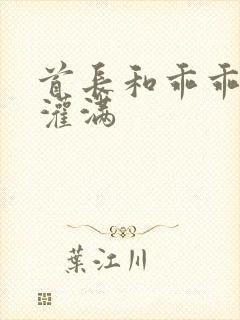 首長和乖乖
灌满
葉江川